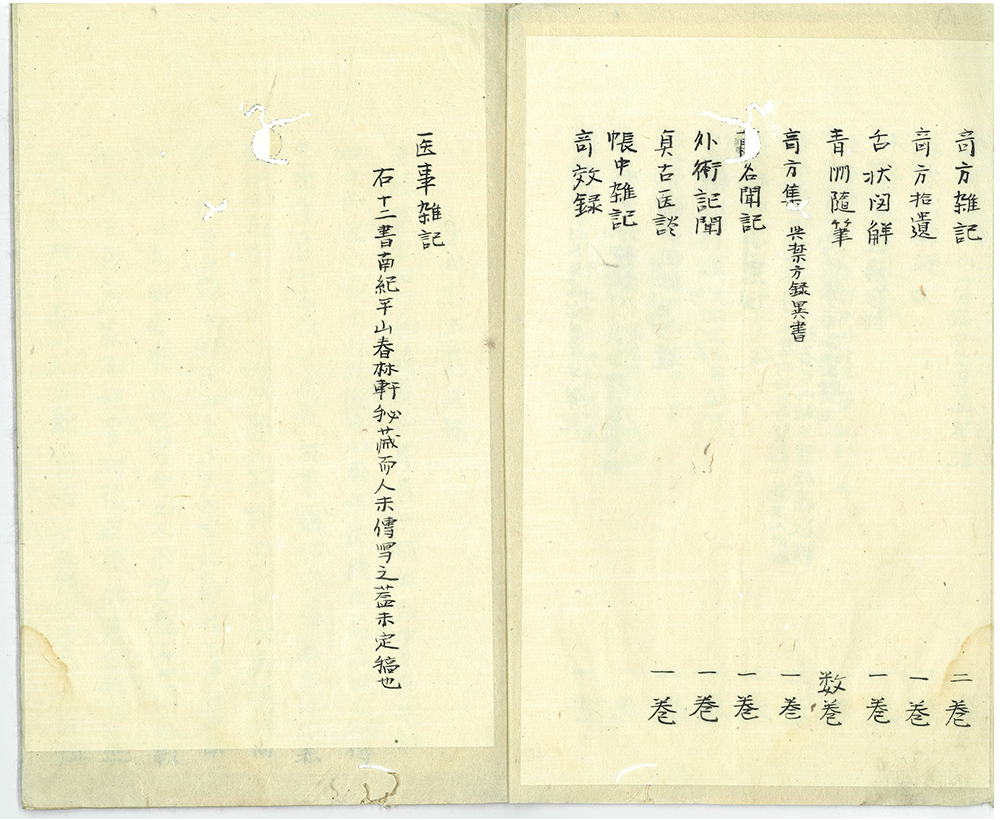 竒方雑記 二巻
竒方拾遺 一巻
舌状図解 一巻
青洲随筆 数巻
竒方集 与禁方録異書 一巻
名聞記 一巻
外術記聞 一巻
貞古医談 一巻
帳中雑記
竒效録
医事雑記
右十二書南紀平山春林軒秘蔵而人未傳写之葢未定稿也